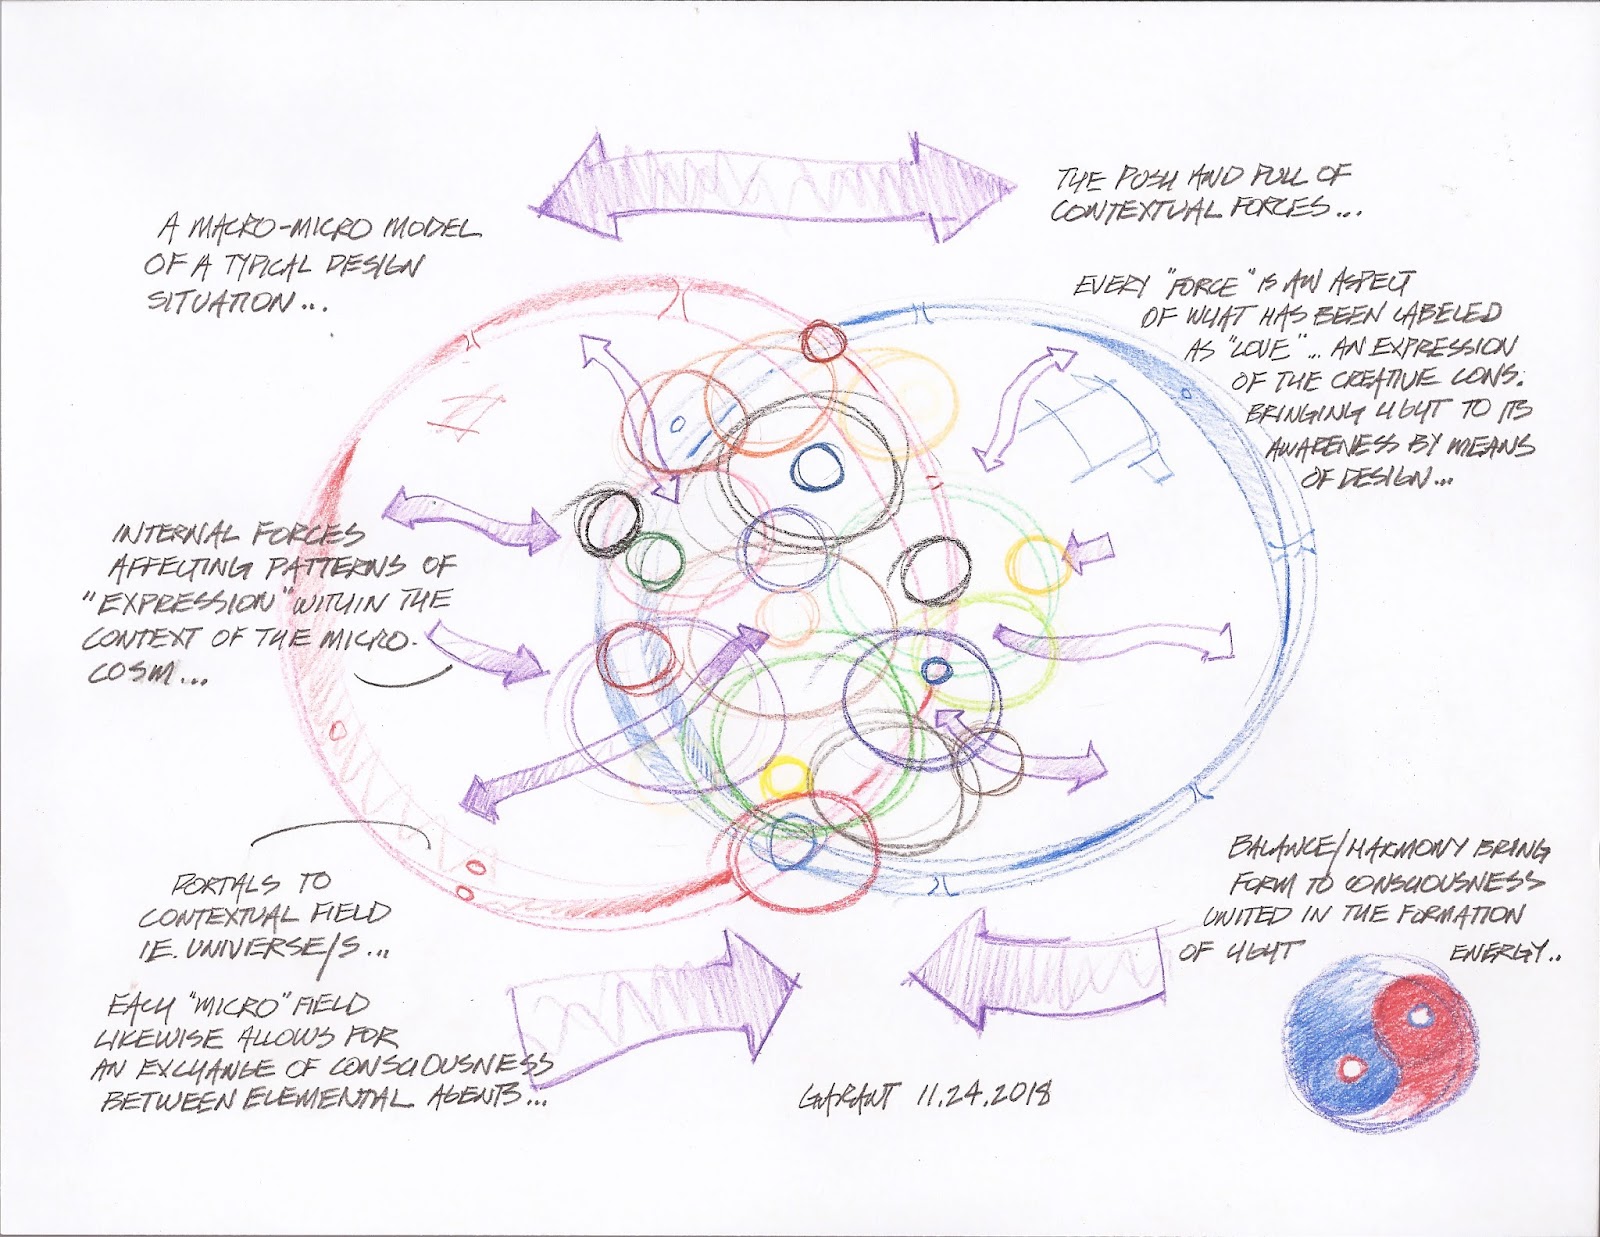 A MACRO-MICRO MODEL
OF A TYPICAL DESIGN
SITUATION...
THE PUSH AND PULL OF
CONTEXTUAL FORCES...
EVERY "FORCE" IS AN ASPECT
OF WHAT HAS BEEN LABELED
AS "LOVE"... AN EXPRESSION
OF THE CREATIVE CONS.
BRINGING LIGHT TO ITS
AWARENESS BY MEANS
OF DESIGN...
INTERNAL FORCES
AFFECTING PATTERNS OF
"EXPRESSION" WITHIN THE
CONTEXT OF THE MICRO-
COSM...
PORTALS TO
CONTEXTUAL FIELD
IE. UNIVERSE/S...
EACH "MICRO" FIELD
LIKEWISE ALLOWS FOR
AN EXCHANGE OF CONSCIOUSNESS
BETWEEN ELEMENTAL AGENTS...
BALANCE/HARMONY BRING
FORM TO CONSCIOUSNESS
UNITED IN THE FORMATION
OF LIGHT ENERGY..
GARANT 11.24.2018